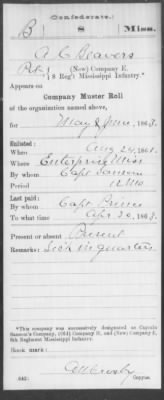 Confederate.
B 8 Miss.
A. C. Beavers
Pvt., (New) Company E,
8 Reg't Mississippi Infantry.*
Appears on
Company Muster Roll
of the organization named above,
for May & June, 1863.
Enlisted:
When Aug 24, 1861.
Where Enterprise Miss
By whom Capt
Period 12 Mo
Last paid:
By whom Capt
To what time Apr 30, 1863.
Present or absent Present
Remarks: Sick in quarters
*This company was successively designated as Captain
Company, (Old) Company E, and (New) Company E,
8th Regiment Mississippi Infantry.
Book mark:
(642)
Copyist.